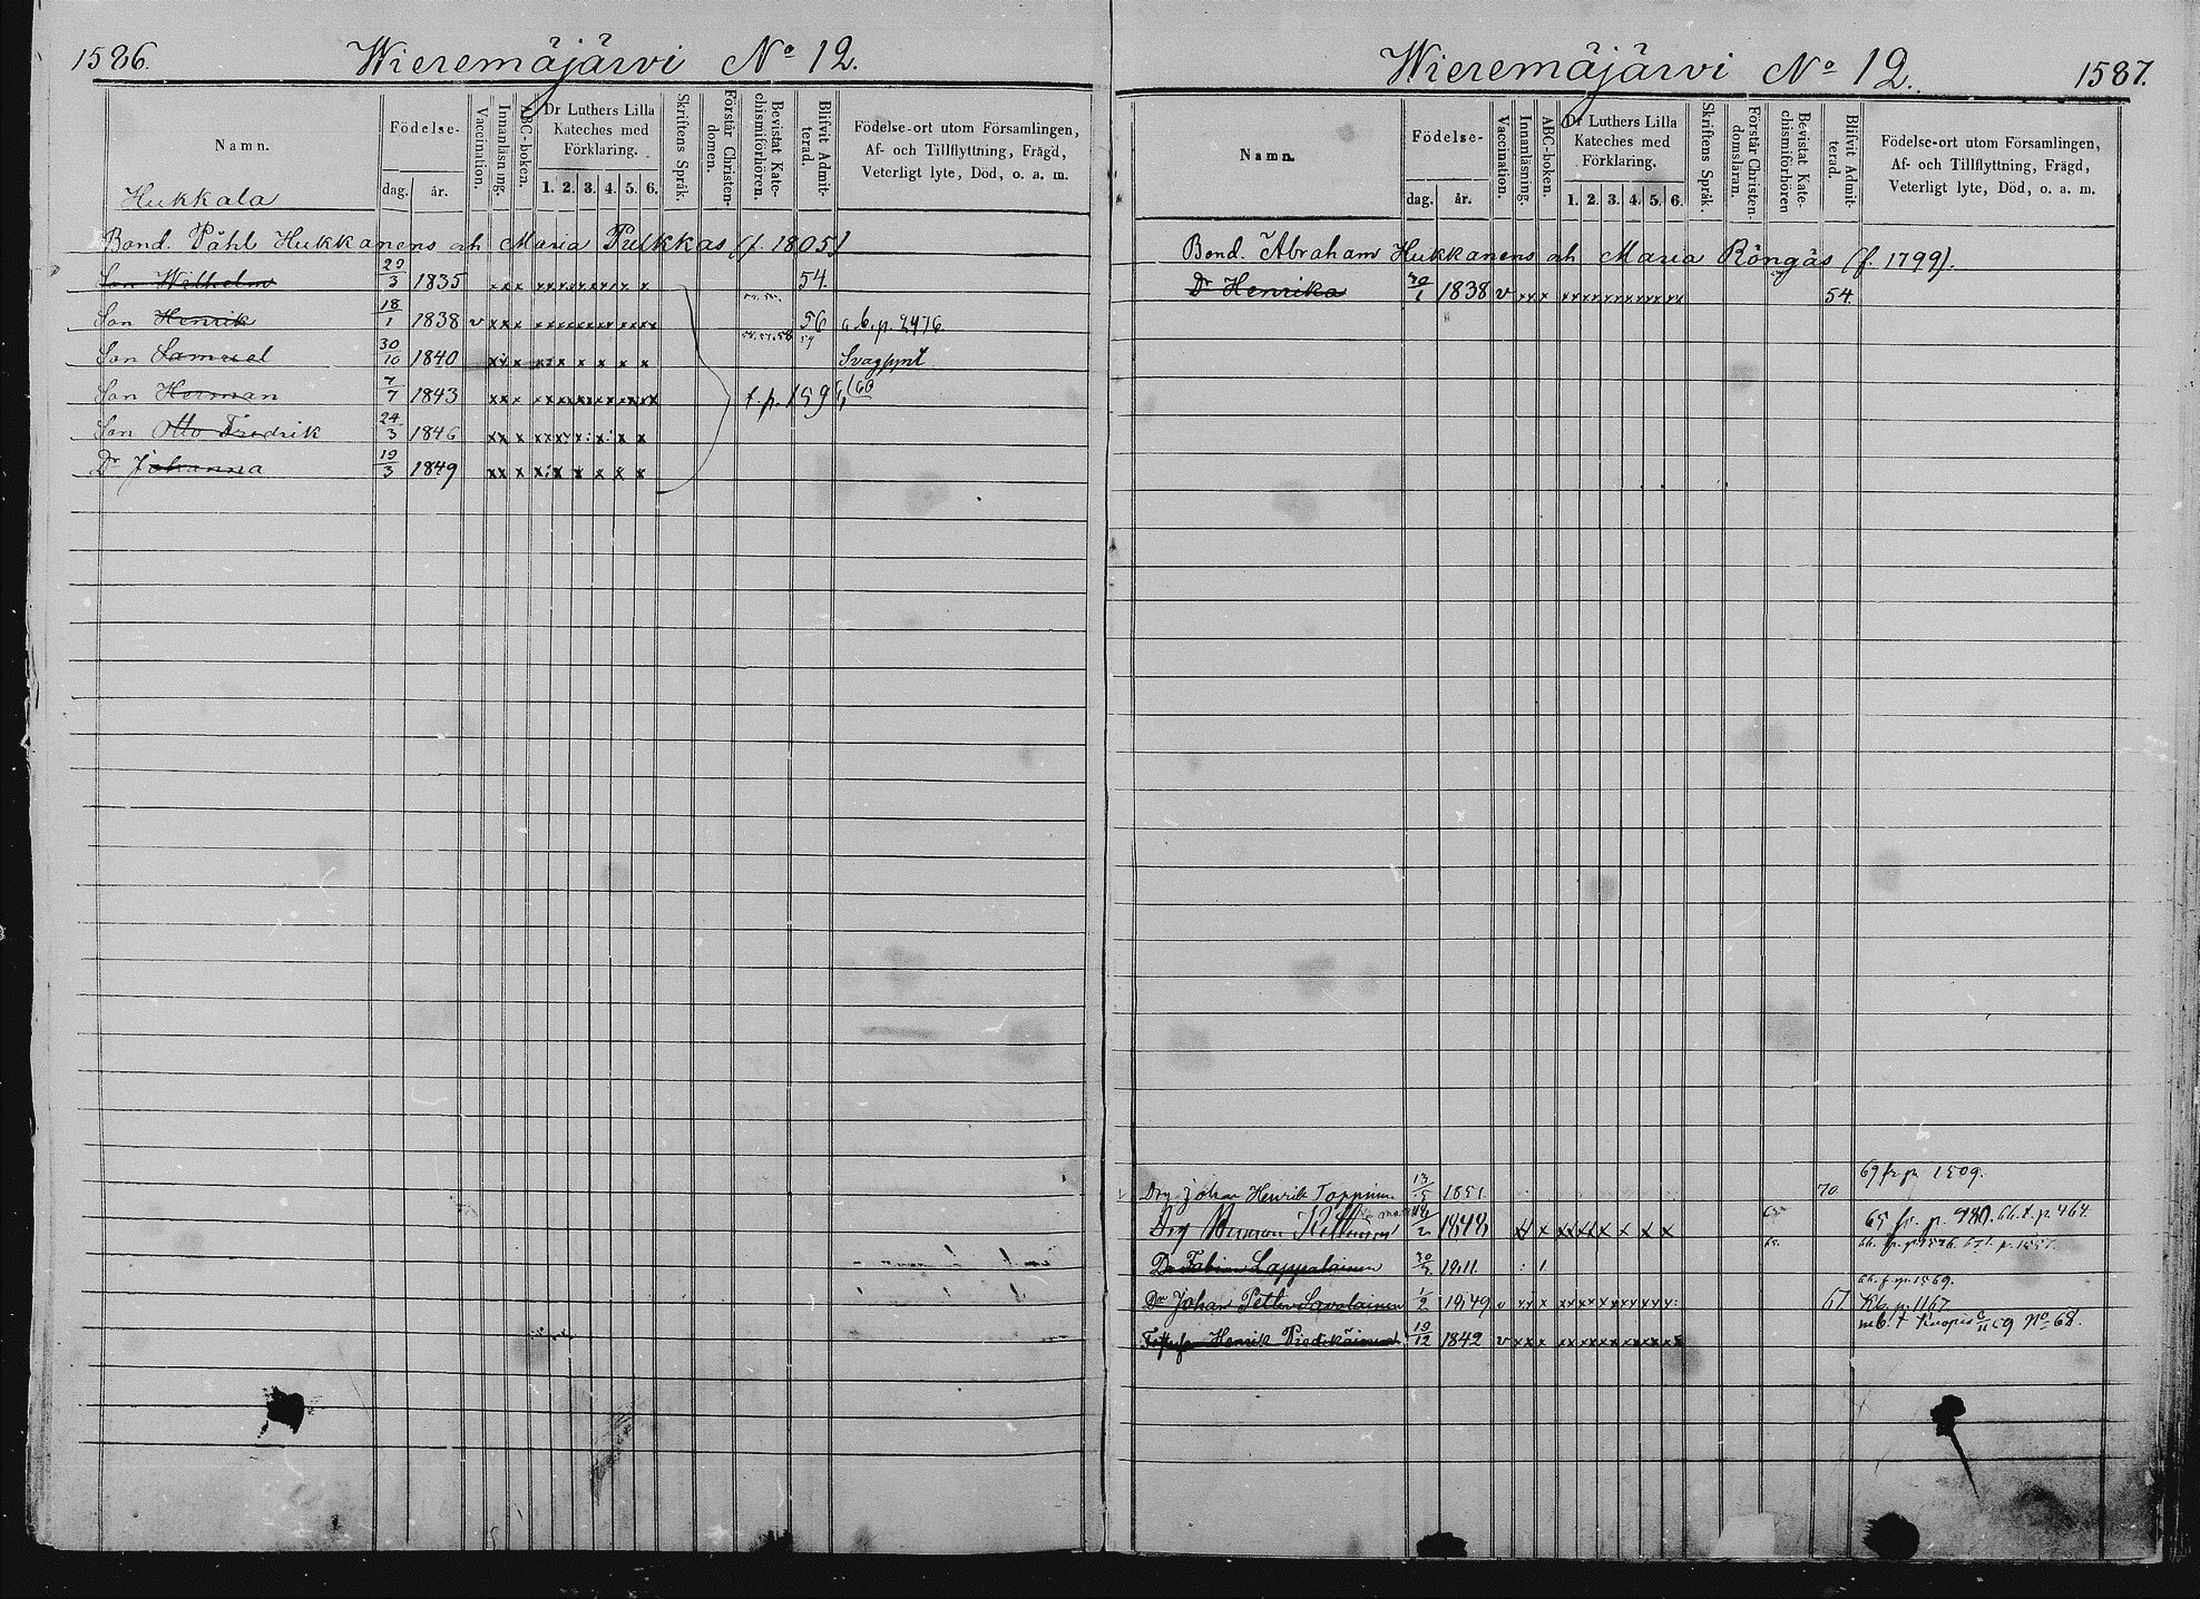 1586.
Wieremäjärvi No 12.
Namn.
Födelse-
dag. år.
Vaccination.
Innanläsning.
ABC-boken.
Dr Luthers Lilla Kateches med Förklaring.
1. 2. 3. 4. 5. 6.
Skriftens Språk.
Förstår Christen-domen.
Bevistat Kate-chismiförhören.
Blifvit Admit-terad.
Födelse-ort utom Församlingen,
Af- och Tillflyttning, Frägd,
Veterligt lyte, Död, o. a. m.
Hukkala
Bond. Påhl Hukkanens och Maria Pulkkas (f. 1805)
Son Wilhelm 29/3 1835 x x x 54.
Son Henrik 18/1 1838 v x x x 56 a. b. p. 2476
Son Samuel 30/10 1840 Svagsynt
Son Herman 7/7 1843 t. p. 159
Son Otto Fredrik 24/3 1846
Dr Johanna 19/3 1849
Wieremäjärvi No 12.
1587.
Namn.
Födelse-
dag. år.
Vaccination.
Innanläsning.
ABC-boken.
Dr Luthers Lilla Kateches med Förklaring.
1. 2. 3. 4. 5. 6.
Skriftens Språk.
Förstår Christen-domsläran.
Bevistat Kate-chismiförhören
Blifvit Admit-terad.
Födelse-ort utom Församlingen,
Af- och Tillflyttning, Frägd,
Veterligt lyte, Död, o. a. m.
Bond. Abraham Hukkanens och Maria Röngäs (f. 1799).
Dr Henrika 1838 v 54.
69 fr. p. 1509.
Drg Johan Henrik Toppinen 13/5 1851. 70
Drg Herman 1848 65 fr. p. 980. 66. t. p. 464.
Dr Fabian Lappalainen
66. f. p. 1569.
Dr Johan Petter Savolainen 1/2 1849 v 67 Kb. p. 1167
Henrik 19/12 1842 v No 68.